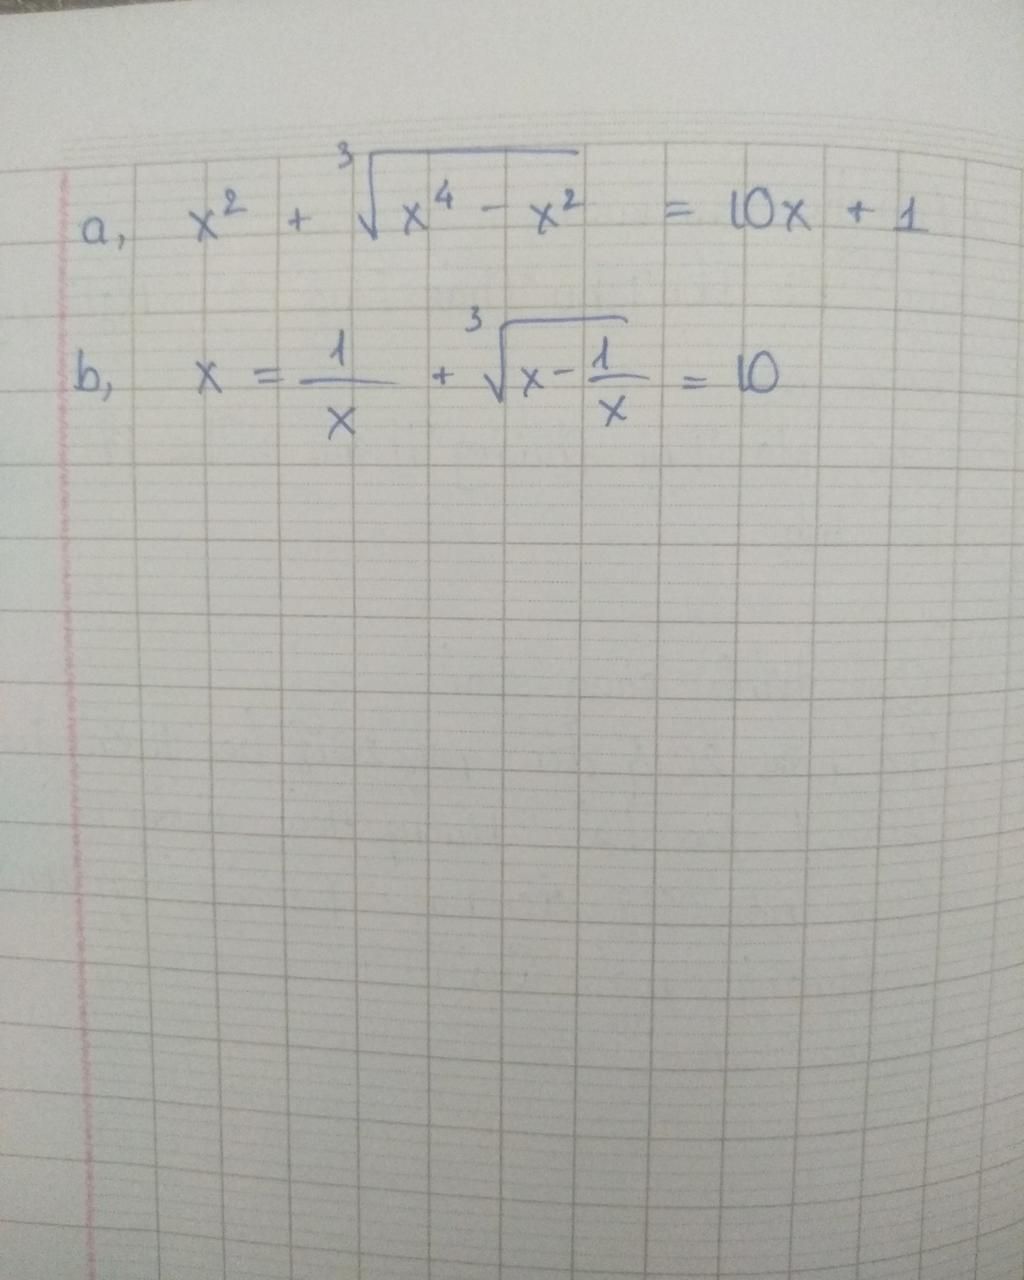 a, x² + ∛(x⁴ - x²) = 10x + 1
b, x = 1/x + ∛(x - 1/x) = 10